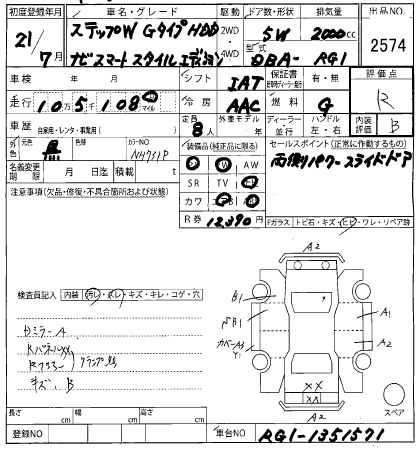 初度登録年月 車名・グレード 駆動 ドア数・形状 排気量 出品NO.
21/7月 ステップW Gタイプ HDD 2WD 4WD 5W 2000cc 2574
ナビ スマート スタイル エディション 型式 DBA-RG1
車検 年 月 シフト IAT 保証書 有・無 評価点 R
走行 10万5千108 マイル 冷房 AAC 燃料 G
車歴 自家用・レンタ・事業用( ) 定員 8人 外車モデル 年 ディーラー 並行 ハンドル 左・右 内装評価 B
外色 元色 黒 色替 カラーNO NH731P 装備品(純正品に限る) セールスポイント(正常に作動するもの)
名義変更期限 月 日迄 積載 t AW 両側パワースライドドア
注意事項(欠品・修復・不具合箇所および状態) SR TV
カワ
R券 12390円 Fガラス トビ石・キズ・ヒビ・ワレ・リペア跡
A2
検査員記入 内装 汚レ・スレ・キズ・キレ・コゲ・穴
B1
B1 A1
カバーA3 Y1 A2
ミラーA
RパネルXX
クランプ跡
キズ、B
XX
XX
A2
スペア
長さ cm 幅 cm 高さ cm
登録NO 車台NO RG1-1351571